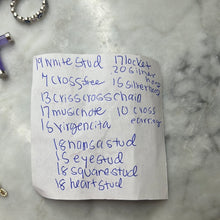 19 white stud 17 locket
20 silver hoop
4 cross free 15 silver
13 criss cross chain
17 music note 10 cross earring
15 virgencita
18 hamsa stud
15 eye stud
18 square stud
18 heart stud